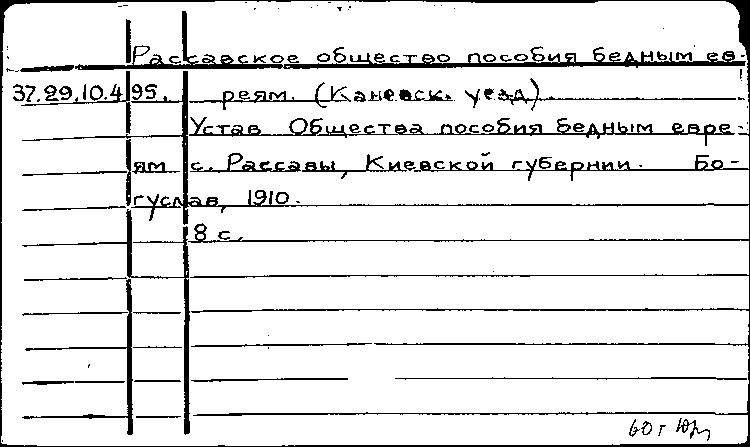 Рассавское общество пособия бедным ев-
37.29.10.4 95. реям. (Каневск. уезд)
Устав Общества пособия бедным евре-
ям с. Рассавы, Киевской губернии. Бо-
гуслав, 1910.
8 с.